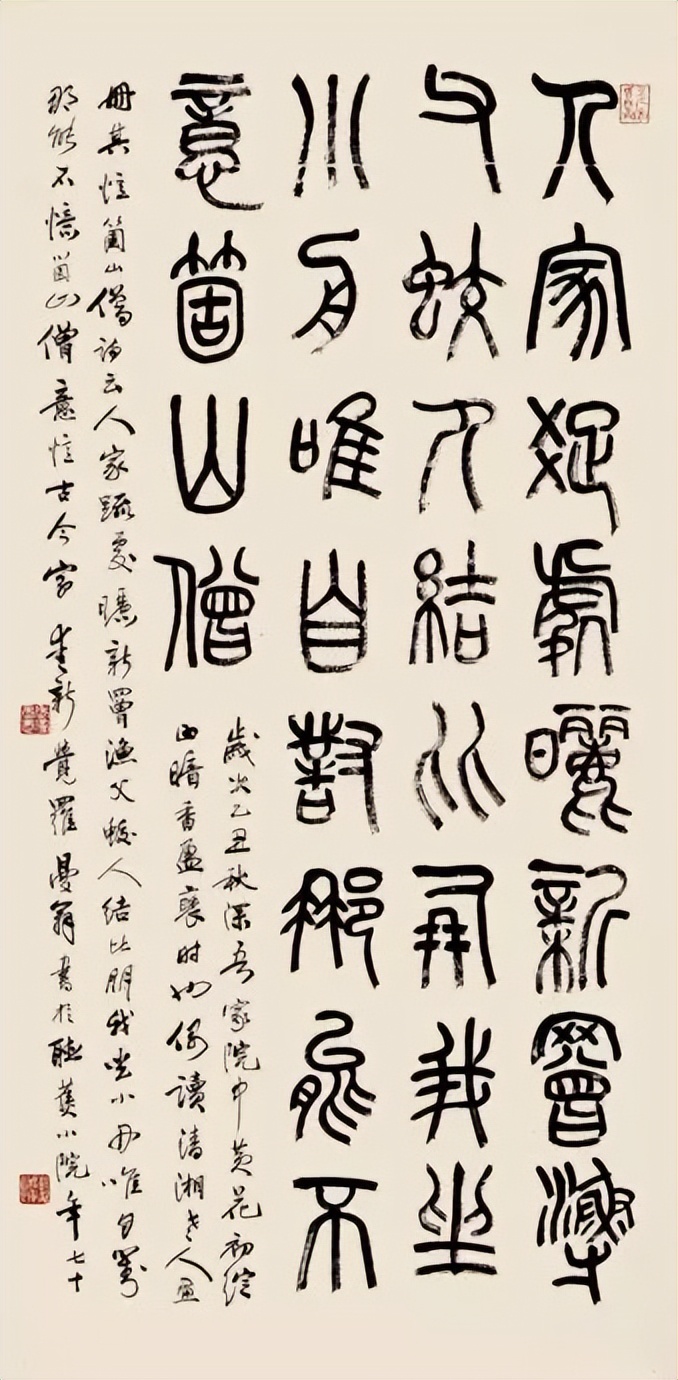 人家疏處曬新罾漁
父蛟人結比朋我坐
小舟唯自對那能不
意箇山僧
歲次乙丑秋深吾家院中黃花初綻
暗香盈褎時也偶讀清湘老人畫
冊其憶箇山僧詩云人家疏處曬新罾漁父蛟人結比朋我坐小舟唯自對
那能不憶箇山僧意憶古今字愛新覺羅曼翁書於聽蕉小院年七十